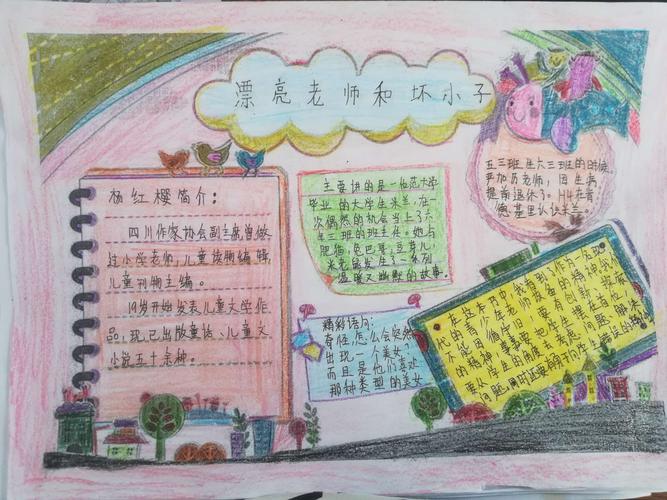 漂亮老师和坏小子
杨红樱简介：
四川作家协会副主席,曾做
过小学老师,儿童读物编辑,
儿童刊物主编。
19岁开始发表儿童文学作
品,现已出版童话、儿童文
小说五十余种。
主要讲的是一师范大学
毕业的大学生米兰,在一
次偶然的机会当上了六
年三班的班主任。她与
肥猫、兔巴哥、豆芽儿、
米老鼠发生了一系列
温暖又幽默的故事。
五三班生六三班的时候,
严加厉老师,因生病
提前退休了。H4在肯
德基里认识米兰。
精彩语句:
奇怪,怎么会突然
出现一个美女,
而且是他们喜欢
那种类型的美女
在这本书,我看到了作为一名现
代的青少年老师
不能因循守旧,要有创新、探索
的精神,
要从学生的角度去考虑问题、解决
问题。